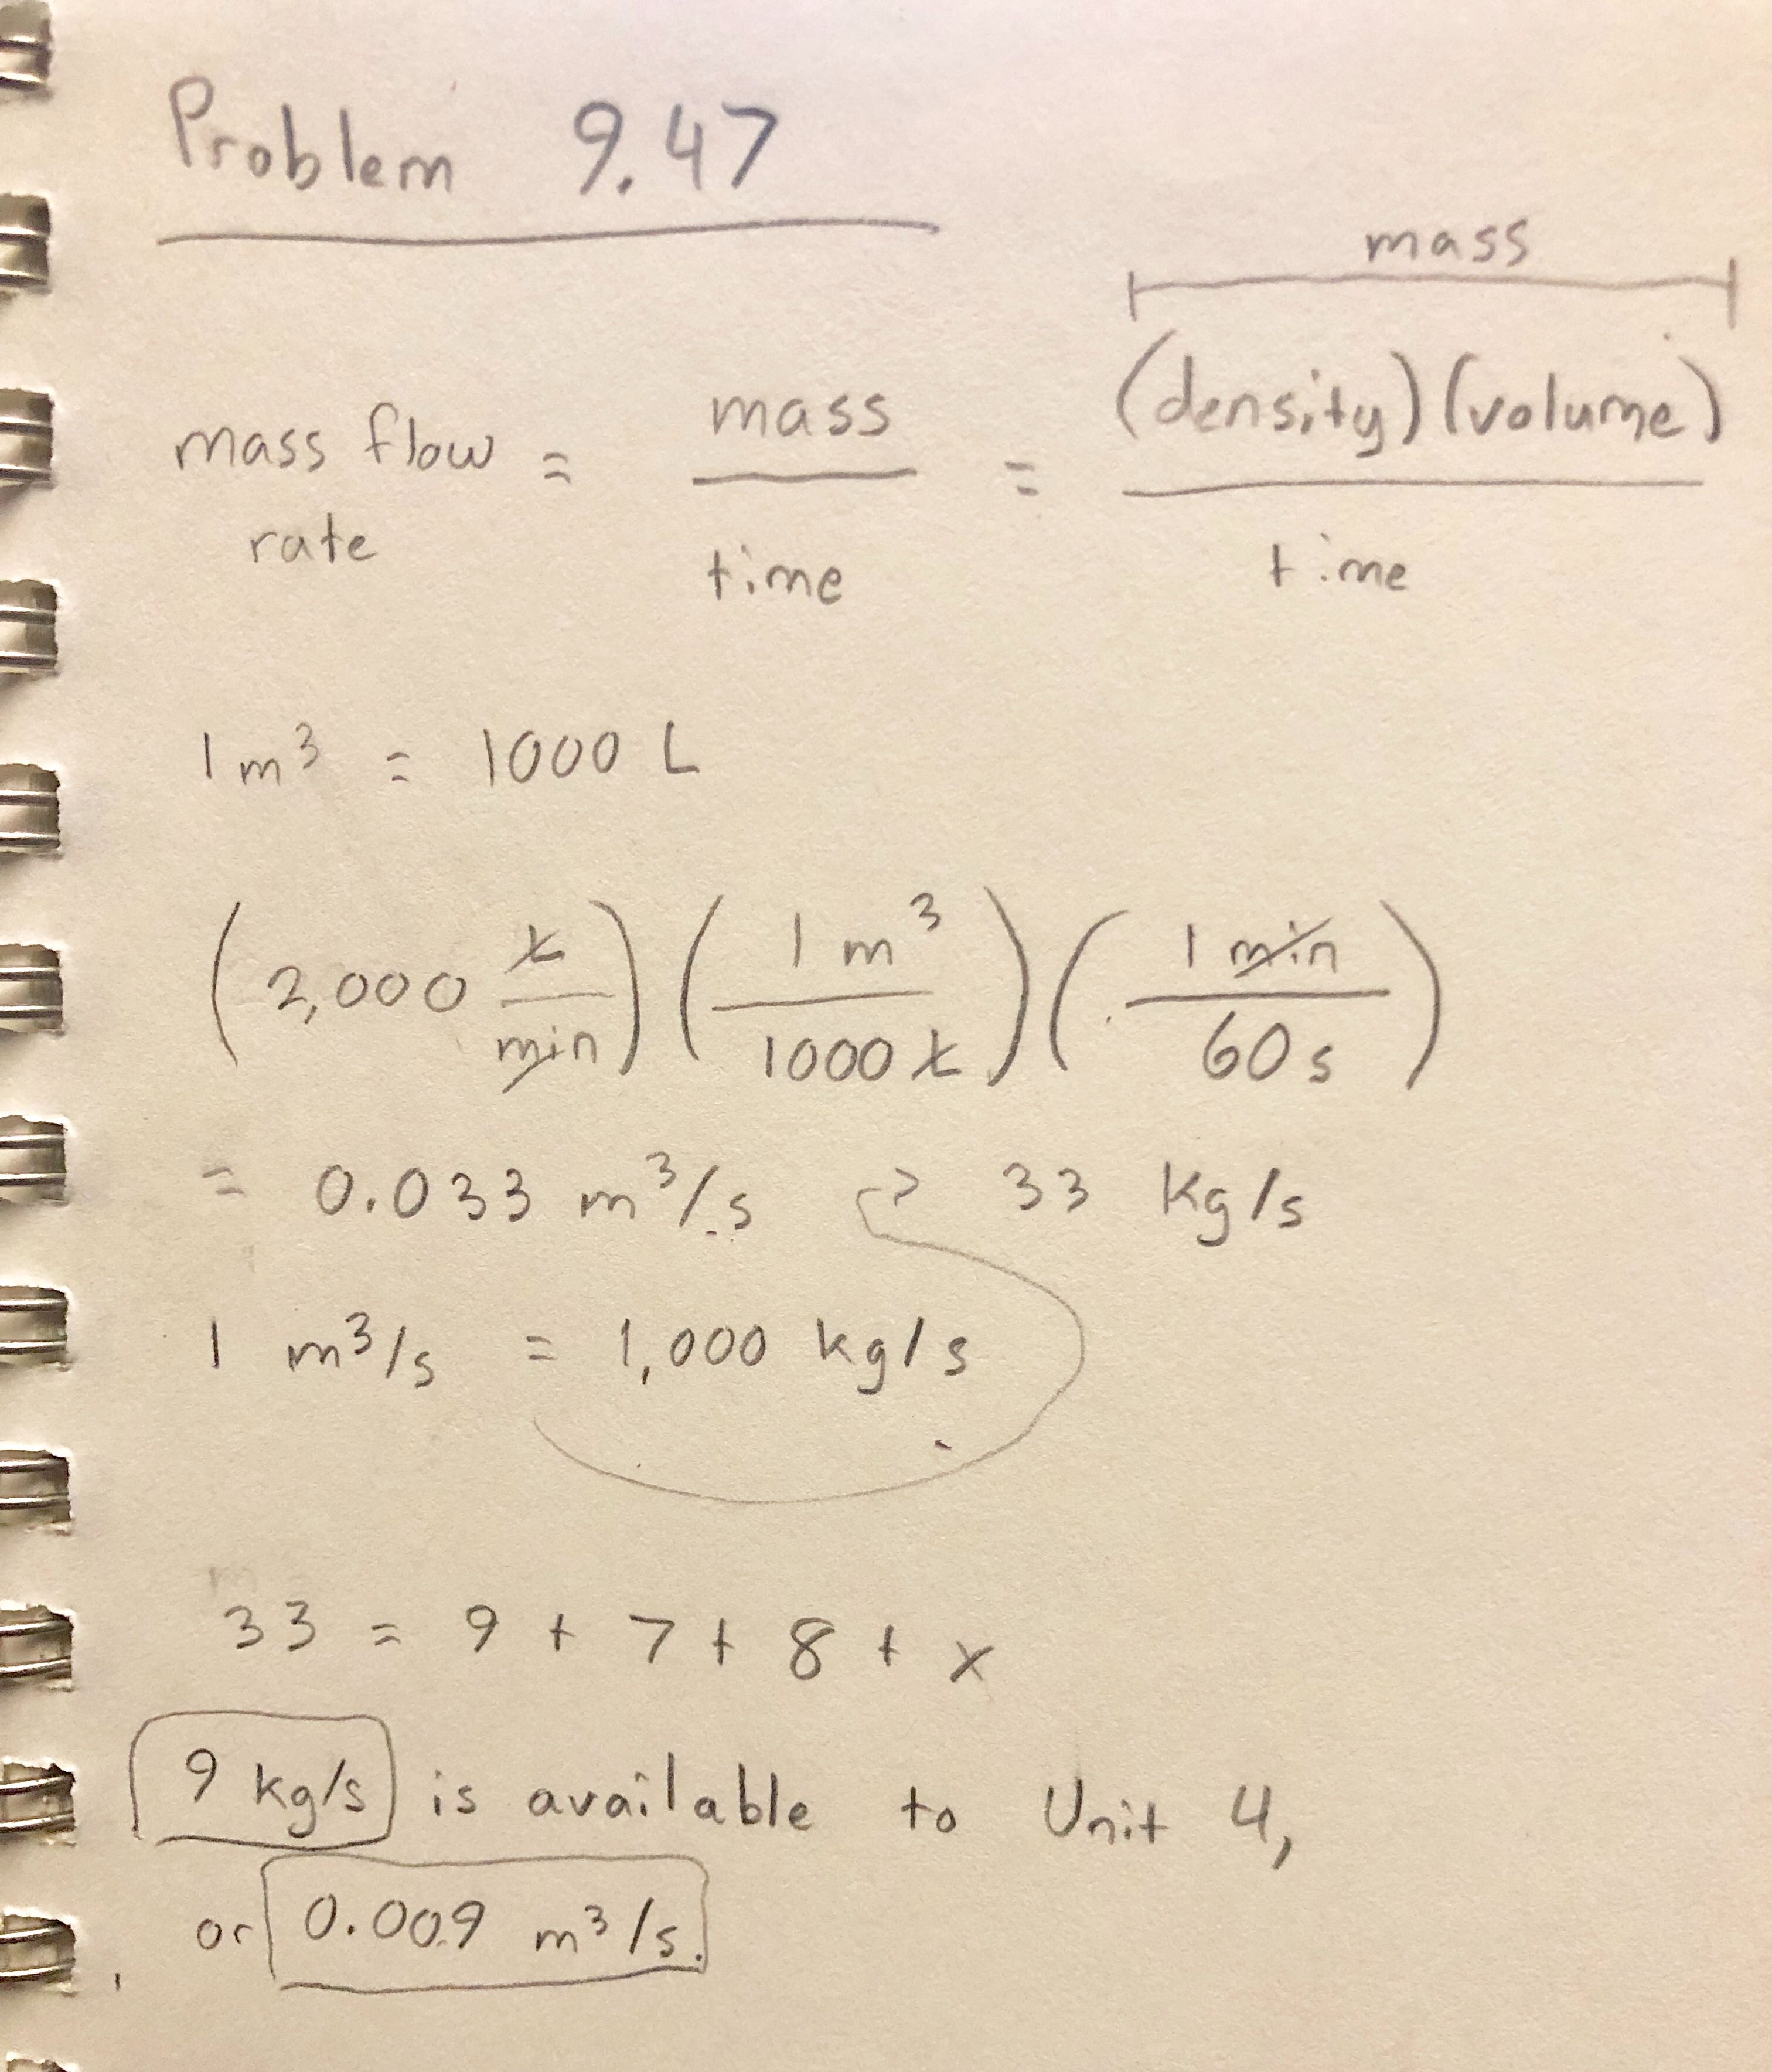 Problem 9.47
mass
mass flow rate = mass / time = (density)(volume) / time
1 m³ = 1000 L
(2,000 L/min)(1 m³/1000 L)(1 min/60 s)
= 0.033 m³/s → 33 kg/s
1 m³/s = 1,000 kg/s
33 = 9 + 7 + 8 + x
9 kg/s is available to Unit 4,
or 0.009 m³/s.